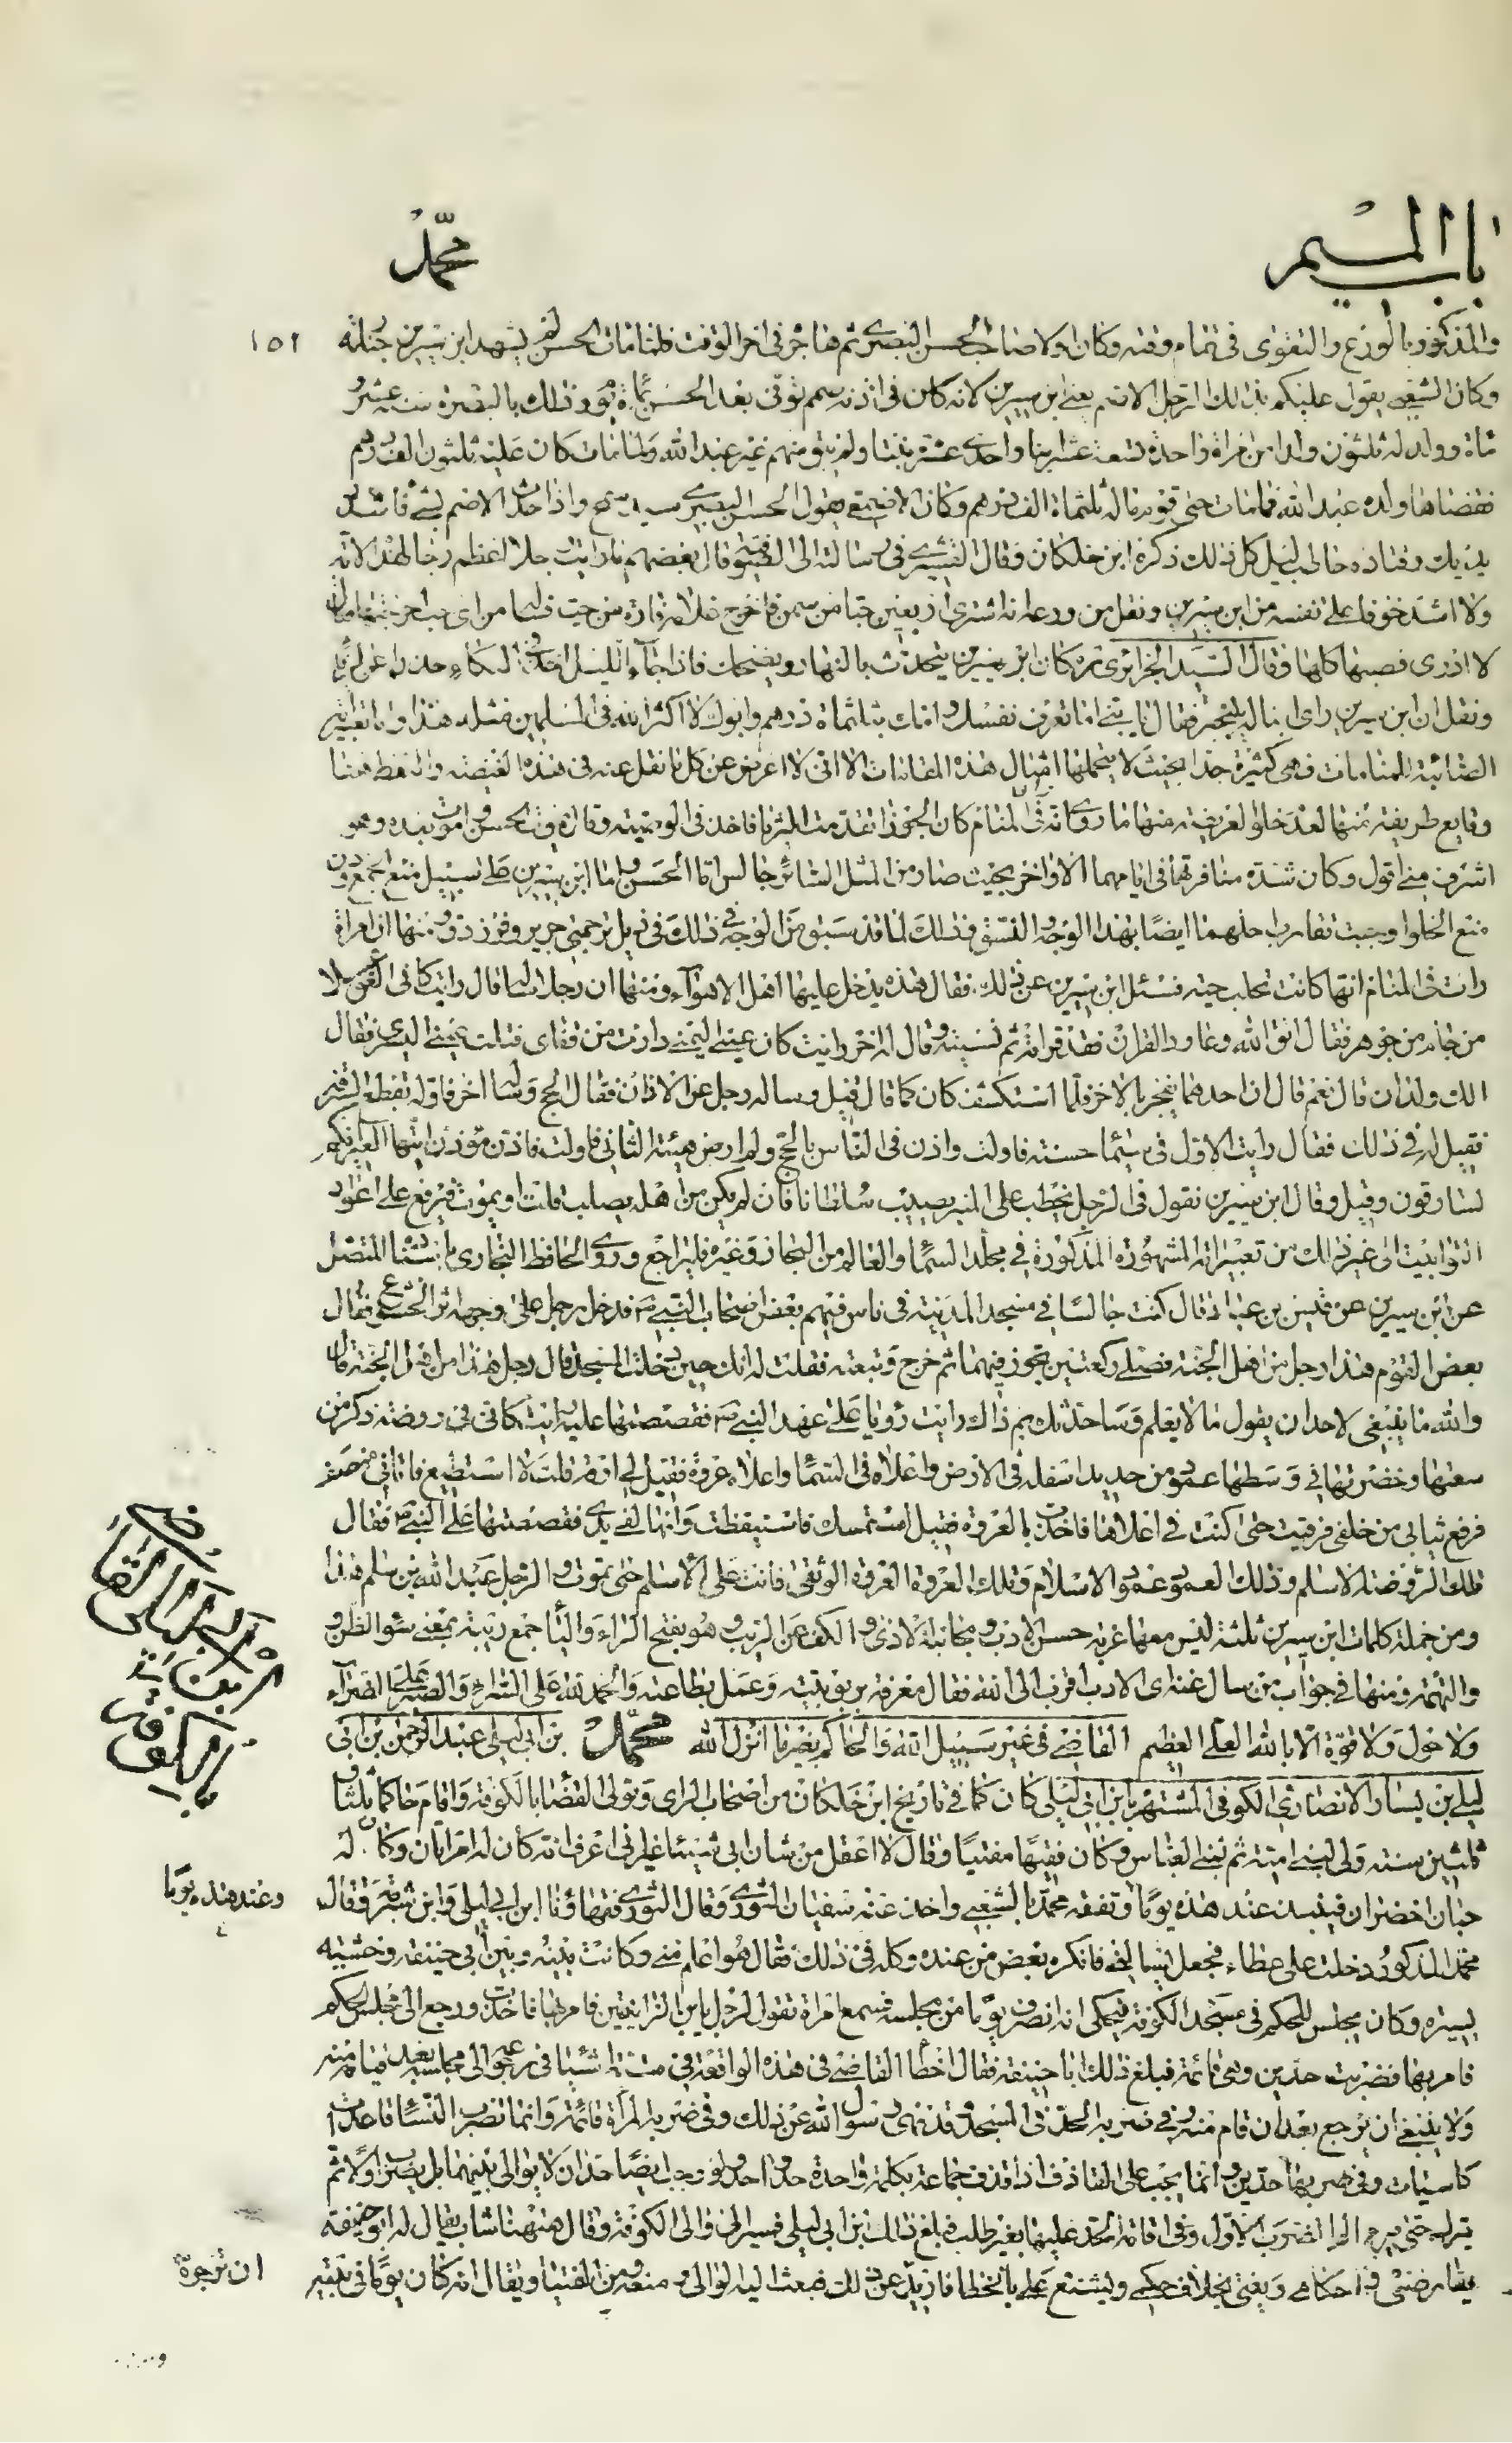 باب الميم
محمّد
والمذكور بالورع والتقوى فى تمام وقته وكان اولا صاحب الحسن البصرى ثم هاجر فى اخر الوقت فلما مات الحسن لم يشهد ابن سيرين جنازته
١٥١
وكان الشعبى يقول عليكم بذلك الرجل الاصم يعنى ابن سيرين لانه كان فى اذنه صمم توفى بعد الحسن بمائة يوم وذلك بالبصرة سنة عشر و
مائة وولد له ثلثون ولدا من امراة واحدة تسعة عشر ابنا واحدى عشرة بنتا ولم يبق منهم غير عبد الله ولما مات كان عليه ثلثون الف درهم
فقضاها ولده عبد الله فما مات حتى قوم ماله ثلثمائة الف درهم وكان الاصمعى يقول الحسن البصرى سيد سمح واذا حدث الاصم بشئ فاشدد
يديك وقتاده حاطب ليل كل ذلك ذكره ابن خلكان وقال القشيرى فى رسالته الى الصوفية وقال بعضهم ما رايت رجلا اعظم رجاء لهذه الامة
ولا اشد خوفا على نفسه من ابن سيرين ونقل من ورعه انه اشترى اربعين حبا من سمن فاخرج غلامه فارة من حب فسالها من اى حب اخرجتها قال
لا ادرى فصبها كلها وقال السيد الجزائرى ره كان ابن سيرين يتحدث بالنهار ويضحك فاذا جاء الليل اخذ فى البكاء
ونقل ان ابن سيرين راى ابنا له يتبختر فقال يا بنى اما تعرف نفسك وامك بثلثمائة درهم وابوك لا اكثر الله فى المسلمين مثله هذا واما تعابيره
الصائبة للمنامات فهى كثيرة جدا بحيث لا يتحملها امثال هذه المقامات الا انى لا اعرض عن كل ما نقل عنه فى هذه القضية والتقط هنا
وقايع طريفة منها لعدخلوا لعريضة منها ما روى انه راى فى المنام كان الجوزا تقدمت الثريا فاخذ فى الوصية وقال يموت الحسن واموت بعده وهو
اشرف منى اقول وكان شدة منافرتهما فى ايامهما الاواخر بحيث صار من المثل السائر جالس اما الحسن واما ابن سيرين على سبيل منع الجمع دون
منع الخلو اوجبت تقارب اجلهما ايضا بهذا الوجه المتسق وذلك لما قد سبق من الوجه فى ذلك فى ذيل ترجمتى جرير وفرزدق ومنها ان امراة
رات فى المنام انها كانت تحلب حية فسئل ابن سيرين عن ذلك فقال هذه يدخل عليها اهل الاهواء ومنها ان رجلا ساله قال رايت كان فى كفى
من جام من جوهر فقال اتق الله وعاود القران فقد قراته ثم نسيته وقال له اخر رايت كان عينى اليمنى دارت من قفاى فقبلت عينى اليسرى فقال
الك ولدان قال نعم قال ان احدهما يفجر بالاخر فلما استكشف كان كما قال قيل وساله رجل عن الاذان فقال الحج وساله اخر فاوله بقطع السرقة
فقيل له فى ذلك فقال رايت الاول فى سيماء حسنة فاولت واذن فى الناس بالحج ولم ارض هيئة الثانى فاولت فاذن مؤذن ايتها العير انكم
لسارقون وقيل وقال ابن سيرين نقول فى الرجل يخطب على المنبر يصيب سلطانا فان لم يكن من اهله يصلب قلت او يموت فيرفع على اعواد
التوابيت الى غير ذلك من تعبيراته المشهورة المذكورة فى مجلد السماء والعالم من البحار وغيره فليراجع وروى الحافظ البخارى باسناده المتصل
عن ابن سيرين عن قيس بن عباد قال كنت جالسا فى مسجد المدينة فى ناس فيهم بعض اصحاب النبى ص فدخل رجل على وجهه اثر الخشوع فقال
بعض القوم هذا رجل من اهل الجنة فصلى ركعتين تجوز فيهما ثم خرج وتبعته فقلت له انك حين دخلت المسجد قال رجل هذا من اهل الجنة قال
والله ما ينبغى لاحد ان يقول ما لا يعلم وساحدثك بم ذاك رايت رؤيا على عهد النبى ص فقصصتها عليه رايت كانى فى روضة ذكر من
سعتها وخضرتها فى وسطها عمود من حديد اسفله فى الارض واعلاه فى السماء واعلاه عروة فقيل لى ارقه قلت لا استطيع فاتانى منصف
فرفع ثيابى من خلفى فرقيت حتى كنت فى اعلاها فاخذت بالعروة فقيل استمسك فاستيقظت وانها لفى يدى فقصصتها على النبى ص فقال
تلك الروضة الاسلام وذلك العمود عمود الاسلام وتلك العروة العروة الوثقى فانت على الاسلام حتى تموت والرجل عبد الله بن سلام هذا
ومن جملة كلمات ابن سيرين ثلثة ليس معها غربة حسن الادب ومجانبة الاذى والكف عن الريب وهو بفتح الراء والياء جمع ريبة بمعنى سوء الظن و
والتهمة ومنها فى جواب من سال عنه اى الادب اقرب الى الله فقال معرفة بربوبيته وعمل بطاعته والحمد لله على السراء والصبر على الضراء
ولا حول ولا قوة الا بالله العلى العظيم القاضى فى غير سبيل الله والحاكم بغير ما انزل الله محمد بن ابى ليلى عبد الرحمن بن ابى
ليلى بن يسار الانصارى الكوفى المشتهر بابن ابى ليلى كان كما فى تاريخ ابن خلكان من اصحاب الراى وتولى القضا بالكوفة واقام حاكما ثلثا و
ثلثين سنة ولى لبنى امية ثم لبنى العباس وكان فقيها مفتيا وقال لا اعقل من شان ابى شيئا غير انى اعرف انه كان له امراتان وكان له
حبان اخضران فينبذ عند هذه يوما وتفقه محمد بالشعبى واخذ عنه سفيان الثورى وقال الثورى فقهاؤنا ابن ابى ليلى وابن شبرمة وقال
وعند هذه يوما
محمد المذكور دخلت على عطاء فجعل يسالنى فانكر بعض من عنده وكلمه فى ذلك فقال هو اعلم منى وكانت بينه وبين ابى حنيفة وحشة
يسيره وكان يجلس للحكم فى مسجد الكوفة فيحكى انه انصرف يوما من مجلسه فسمع امراة تقول لرجل يابن الزانيين فامر بها فاخذت ورجع الى مجلس الحكم
فامر بها فضربت حدين وهى قائمة فبلغ ذلك ابا حنيفة فقال اخطا القاضى فى هذه الواقعة فى ستة اشياء فى رجوعه الى مجلسه بعد قيامه منه
ولا ينبغى ان يرجع بعد ان قام منه وفى ضربه الحد فى المسجد وقد نهى رسول الله عن ذلك وفى ضربه المراة قائمة وانما تضرب النساء قاعدات
كاسيات وفى ضربه اياها حدين وانما يجب على القاذف اذا قذف جماعة بكلمة واحدة حد واحد ولو وجب ايضا حدان لا يوالى بينهما بل يضرب اولا ثم
يترك حتى يبرء الم الضرب الاول وفى اقامة الحد عليها بغير طلب فبلغ ذلك ابن ابى ليلى فسير الى والى الكوفة وقال ههنا شاب يقال له ابو حنيفة
يعارضنى فى احكامى ويفتى بخلاف حكمى ويشنع على بالخطا فازجره عن ذلك فبعث اليه الوالى ومنعه من الفتيا ويقال انه كان يوما فى بيته
اريد ان تزجره